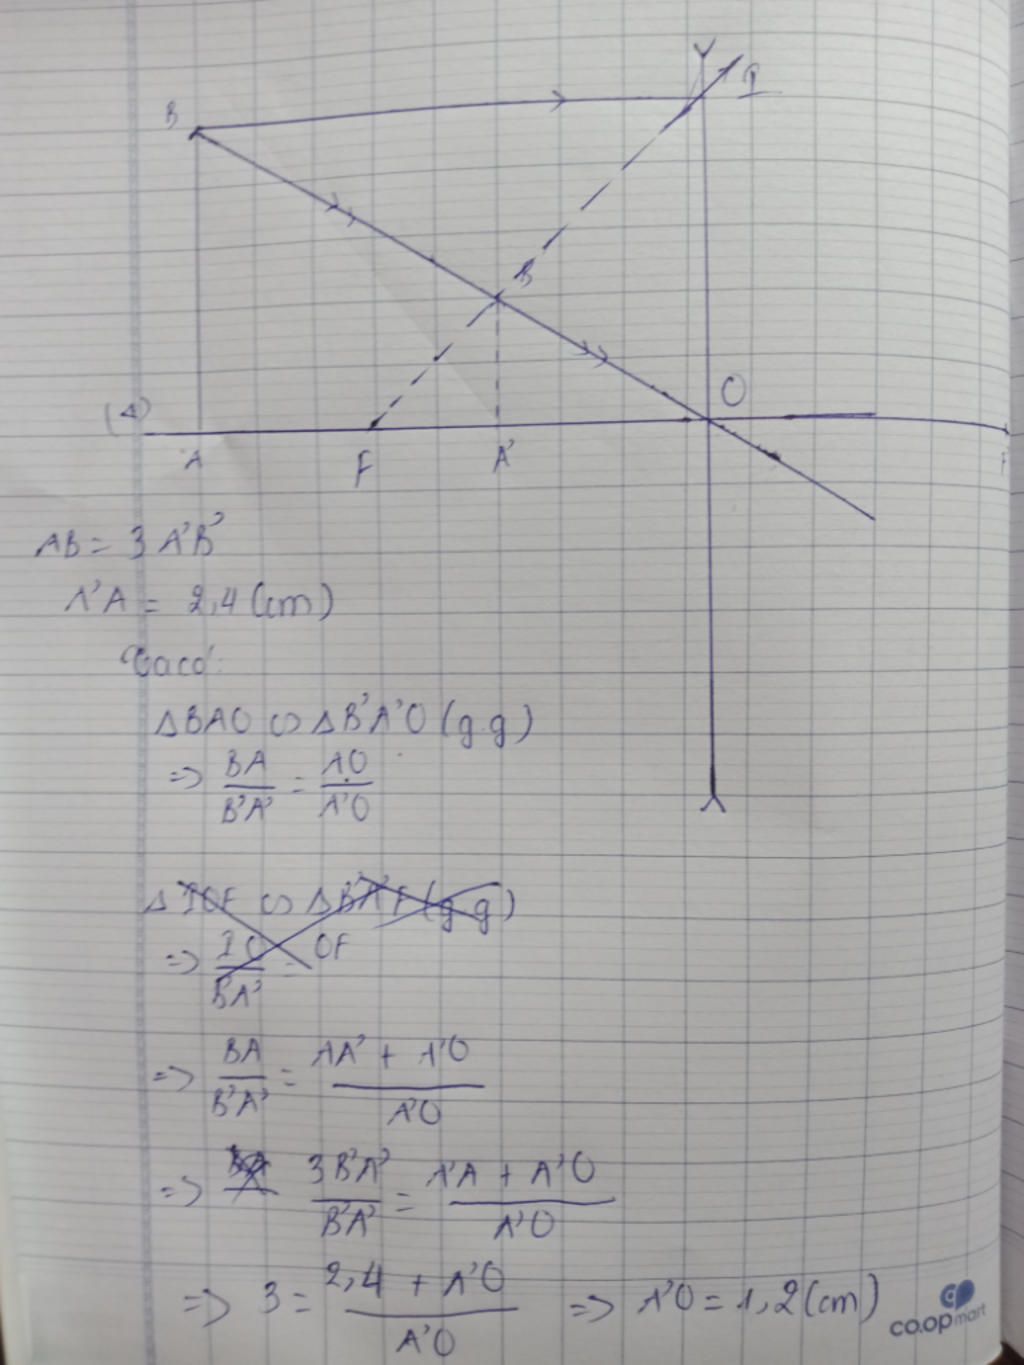 B
I
B
O
(Δ)
A
F
A'
F
AB = 3 A'B'
A'A = 2,4 (cm)
Ta có:
ΔBAO ∽ ΔB'A'O (g.g)
=> BA/B'A' = AO/A'O
ΔIOF ∽ ΔB'A'F (g.g)
=> IO/BA' = OF
=> BA/B'A' = AA' + A'O/A'O
=> BA 3B'A'/B'A' = A'A + A'O/A'O
=> 3 = 2,4 + A'O/A'O => A'O = 1,2 (cm)
co.opmart